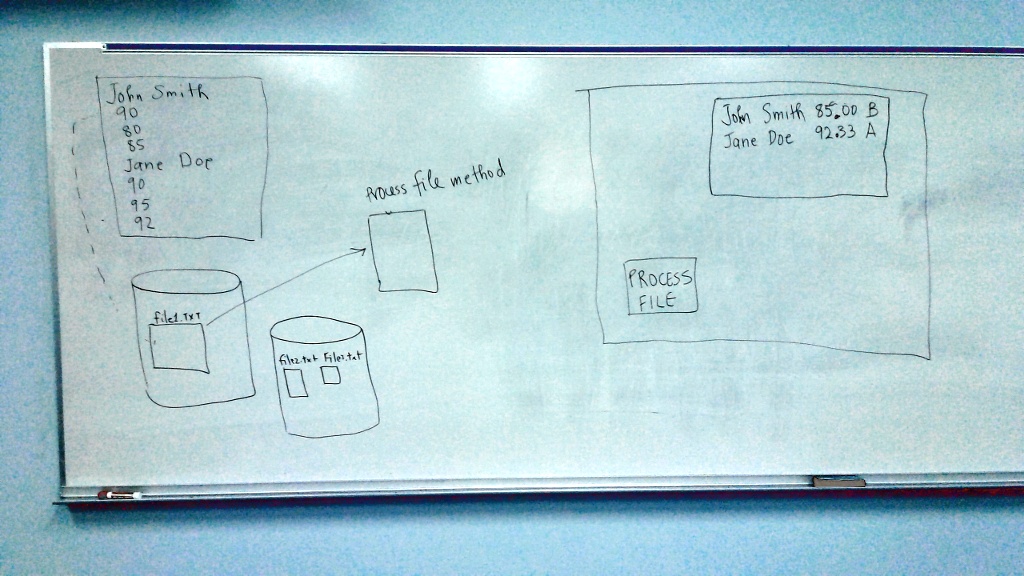 John Smith
90
80
85
Jane Doe
90
95
92
Process file method
file1.txt
file2.txt File3.txt
John Smith 85.00 B
Jane Doe 92.33 A
PROCESS
FILE